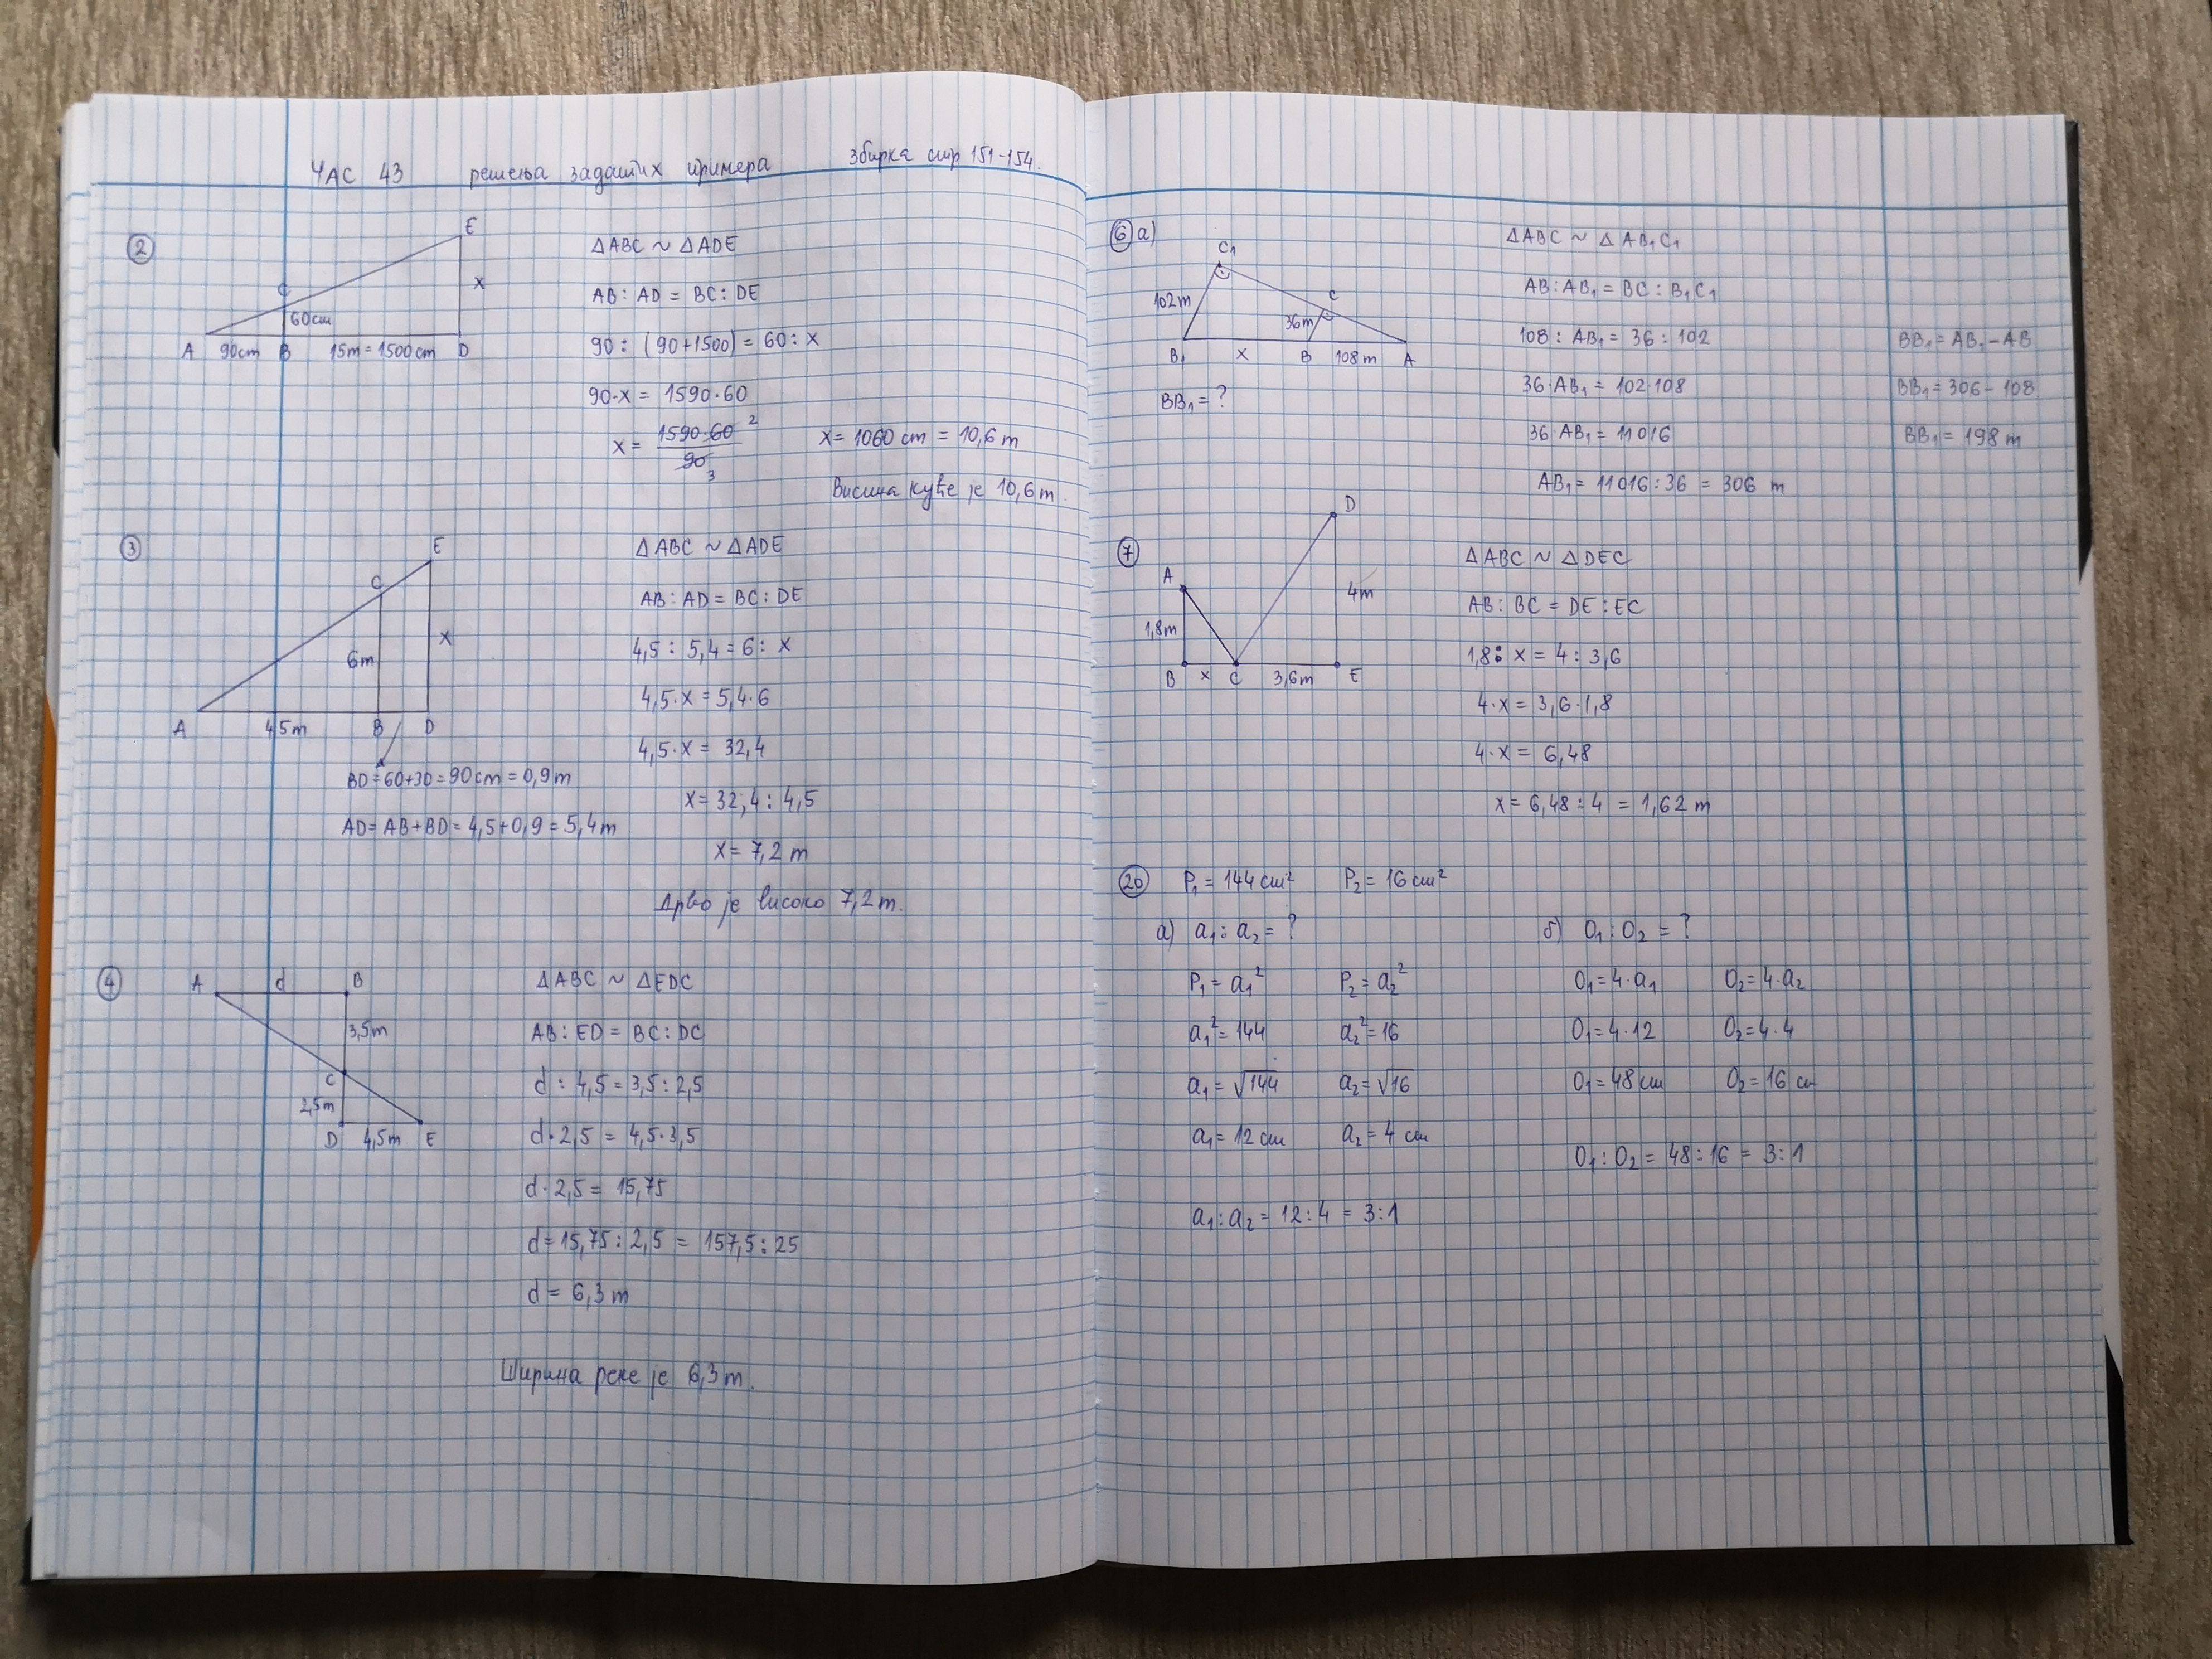 ЧАС 43 решења задатих примера збирка стр 151-154.
②
E
C
x
60cm
A 90cm B 15m = 1500cm D
ΔABC ~ ΔADE
AB : AD = BC : DE
90 : (90+1500) = 60 : x
90·x = 1590·60
x = 1590·60 2 / 90 3
x = 1060 cm = 10,6 m
Висина куће је 10,6 m.
③
E
C
x
6m
A 4,5m B D
BD = 60+30 = 90cm = 0,9m
AD = AB+BD = 4,5+0,9 = 5,4m
ΔABC ~ ΔADE
AB : AD = BC : DE
4,5 : 5,4 = 6 : x
4,5·x = 5,4·6
4,5·x = 32,4
x = 32,4 : 4,5
x = 7,2 m
Дрво је високо 7,2 m.
④
A d B
3,5m
C
2,5m
D 4,5m E
ΔABC ~ ΔEDC
AB : ED = BC : DC
d : 4,5 = 3,5 : 2,5
d·2,5 = 4,5·3,5
d·2,5 = 15,75
d = 15,75 : 2,5 = 157,5 : 25
d = 6,3 m
Ширина реке је 6,3 m.
⑥ а)
C₁
102m
C
36m
B₁ x B 108m A
BB₁ = ?
ΔABC ~ ΔAB₁C₁
AB : AB₁ = BC : B₁C₁
108 : AB₁ = 36 : 102
36·AB₁ = 102·108
36·AB₁ = 11016
AB₁ = 11016 : 36 = 306 m
BB₁ = AB₁ - AB
BB₁ = 306 - 108
BB₁ = 198 m
⑦
D
A
4m
1,8m
B x C 3,6m E
ΔABC ~ ΔDEC
AB : BC = DE : EC
1,8 : x = 4 : 3,6
4·x = 3,6·1,8
4·x = 6,48
x = 6,48 : 4 = 1,62 m
⑳ P₁ = 144 cm² P₂ = 16 cm²
а) a₁ : a₂ = ? б) O₁ : O₂ = ?
P₁ = a₁² P₂ = a₂² O₁ = 4·a₁ O₂ = 4·a₂
a₁² = 144 a₂² = 16 O₁ = 4·12 O₂ = 4·4
a₁ = √144 a₂ = √16 O₁ = 48 cm O₂ = 16 cm
a₁ = 12 cm a₂ = 4 cm
O₁ : O₂ = 48 : 16 = 3 : 1
a₁ : a₂ = 12 : 4 = 3 : 1